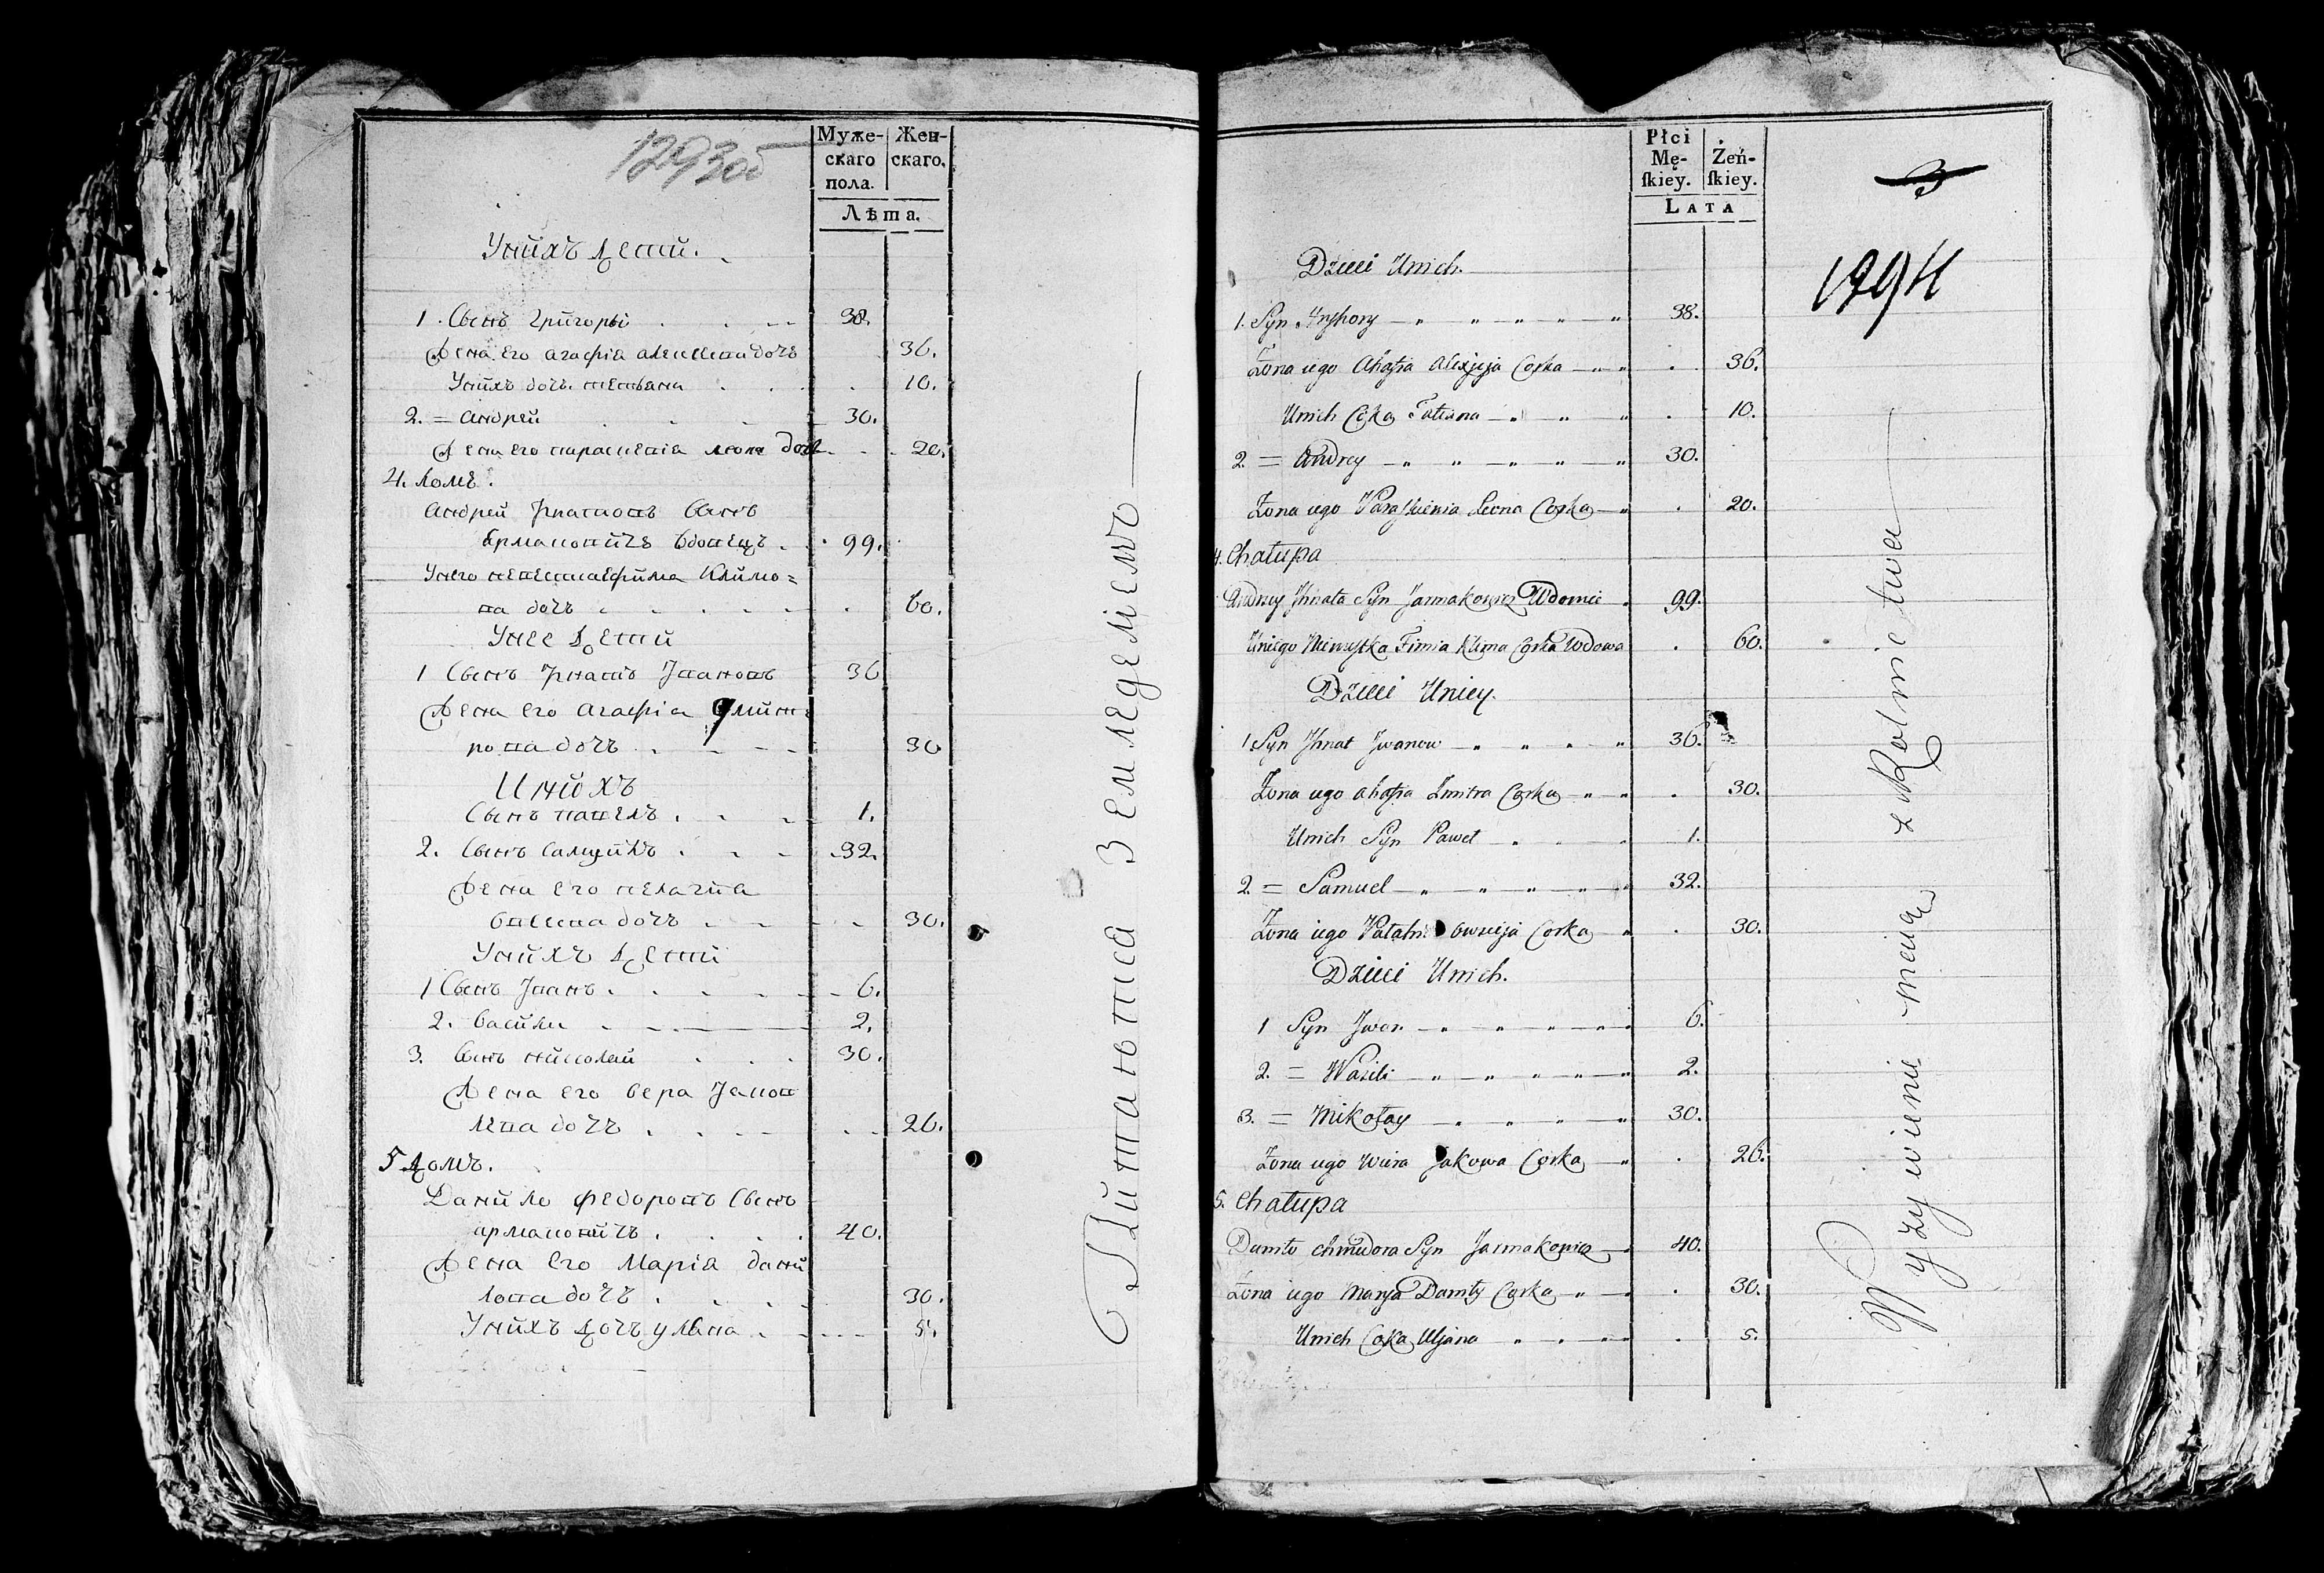 1293об
Муже-
скаго
пола.
Жен-
скаго.
Лѣта.
Унихъ дети.
1. Сынъ Григорьи 38.
Жена его агафiа алексеева дочь 36.
Унихъ дочь татьяна 10.
2. = андрей 30.
Жена его параскевiа леона дочь 20.
4. домъ.
андрей Игнатовъ Сынъ
Ярмаковичъ вдовецъ 99.
Унего невестка Ефима Климо=
ва дочь 60.
Унее дети
1 Сынъ Игнатъ Ивановъ 36
Жена его агафiа Дмит-
рова дочь 30
Инихъ
Сынъ павелъ 1.
2. Сынъ Самуилъ 32.
Жена его пелагиа
дочь 30.
Унихъ дети
1 Сынъ Иванъ 6.
2. васили 2.
3. Сынъ николай 30.
Жена его вера Яков
лева дочь 26.
5 домъ.
Данило федоровъ Сынъ
армаковичъ 40.
Жена его Марiя дани
лова дочь 30.
Унихъ дочь уляна 5.
Питаньтса Земледелiемъ
Płci
Mę-
ſkiey.
Żeń-
ſkiey.
LATA
3
1294
Dzieci Unich.
1. Syn Hryhory 38.
Zona iego Ahafia Alexjeja Corka 36.
Unich Corka Tatiana 10.
2. = Andrey 30.
Zona iego Paraskiewia Leona Corka 20.
4. Chałupa
Andrzey Ihnata Syn Jarmakowicz Wdowiec 99.
Uniego Niewestka Fimia Klima Corka Wdowa 60.
Dzieci Uniey.
1 Syn Ihnat Iwanow 36.
Zona iego Ahafia Dmitra Corka 30.
Unich Syn Paweł 1.
2. = Samuel 32.
Zona iego Corka 30.
Dzieci Unich.
1 Syn Iwan 6.
2. = Wasili 2.
3. = Mikołay 30.
Zona iego Wiera Jakowa Corka 26.
5. Chałupa
Daniło Chwiedora Syn Jarmakowicz 40.
Zona iego Marya Daniły Corka 30.
Unich Corka Uljana 5.
Wyzywienie maią z Rolnictwa